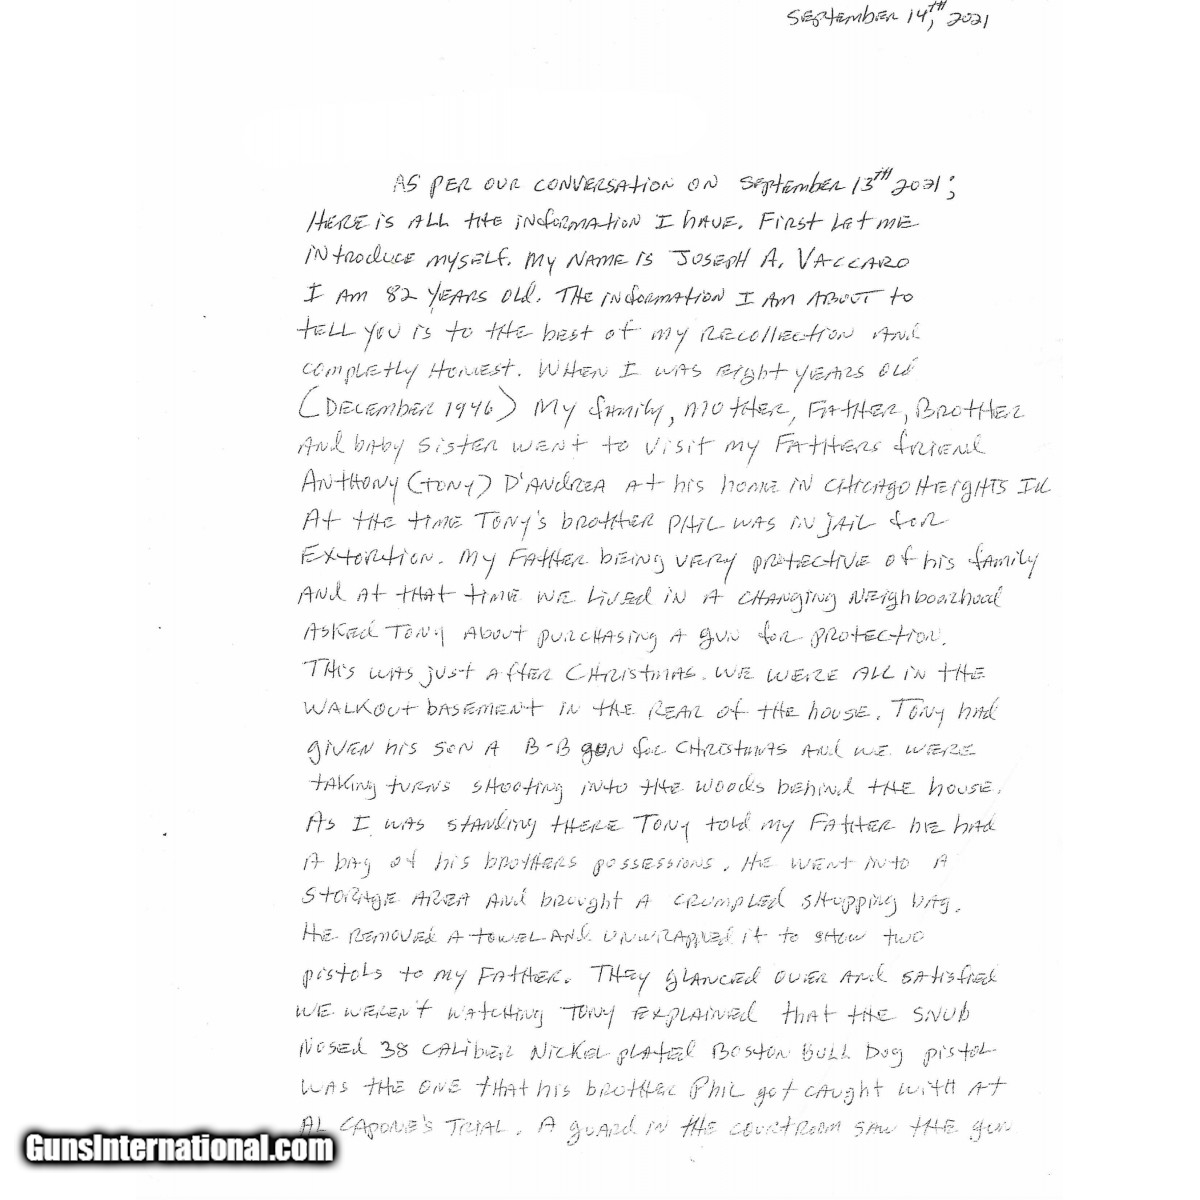 September 14TH, 2021
As per our conversation on September 13TH 2021;
Here is all the information I have. First let me
introduce myself. My name is Joseph A. Vaccaro
I am 82 years old. The information I am about to
tell you is to the best of my recollection and
completly honest. When I was eight years old
(December 1946) my family, mother, father, brother
and baby sister went to visit my fathers friend
Anthony (Tony) D'Andrea at his home in Chicago Heights Ill
At the time Tony's brother Phil was in jail for
extortion. My father being very protective of his family
and at that time we lived in a changing neighboorhood
asked Tony about purchasing a gun for protection.
This was just after Christmas. We were all in the
walkout basement in the rear of the house. Tony had
given his son a B-B gun for Christmas and we were
taking turns shooting into the woods behind the house.
As I was standing there Tony told my father he had
a bag of his brothers possessions. He went into a
storage area and brought a crumpled shopping bag.
He removed a towel and unwrapped it to show two
pistols to my father. They glanced over and satisfied
we weren't watching Tony explained that the snub
nosed 38 caliber nickel plated Boston Bull Dog pistol
was the one that his brother Phil got caught with at
Al Capone's trial. A guard in the courtroom saw the gun
GunsInternational.com